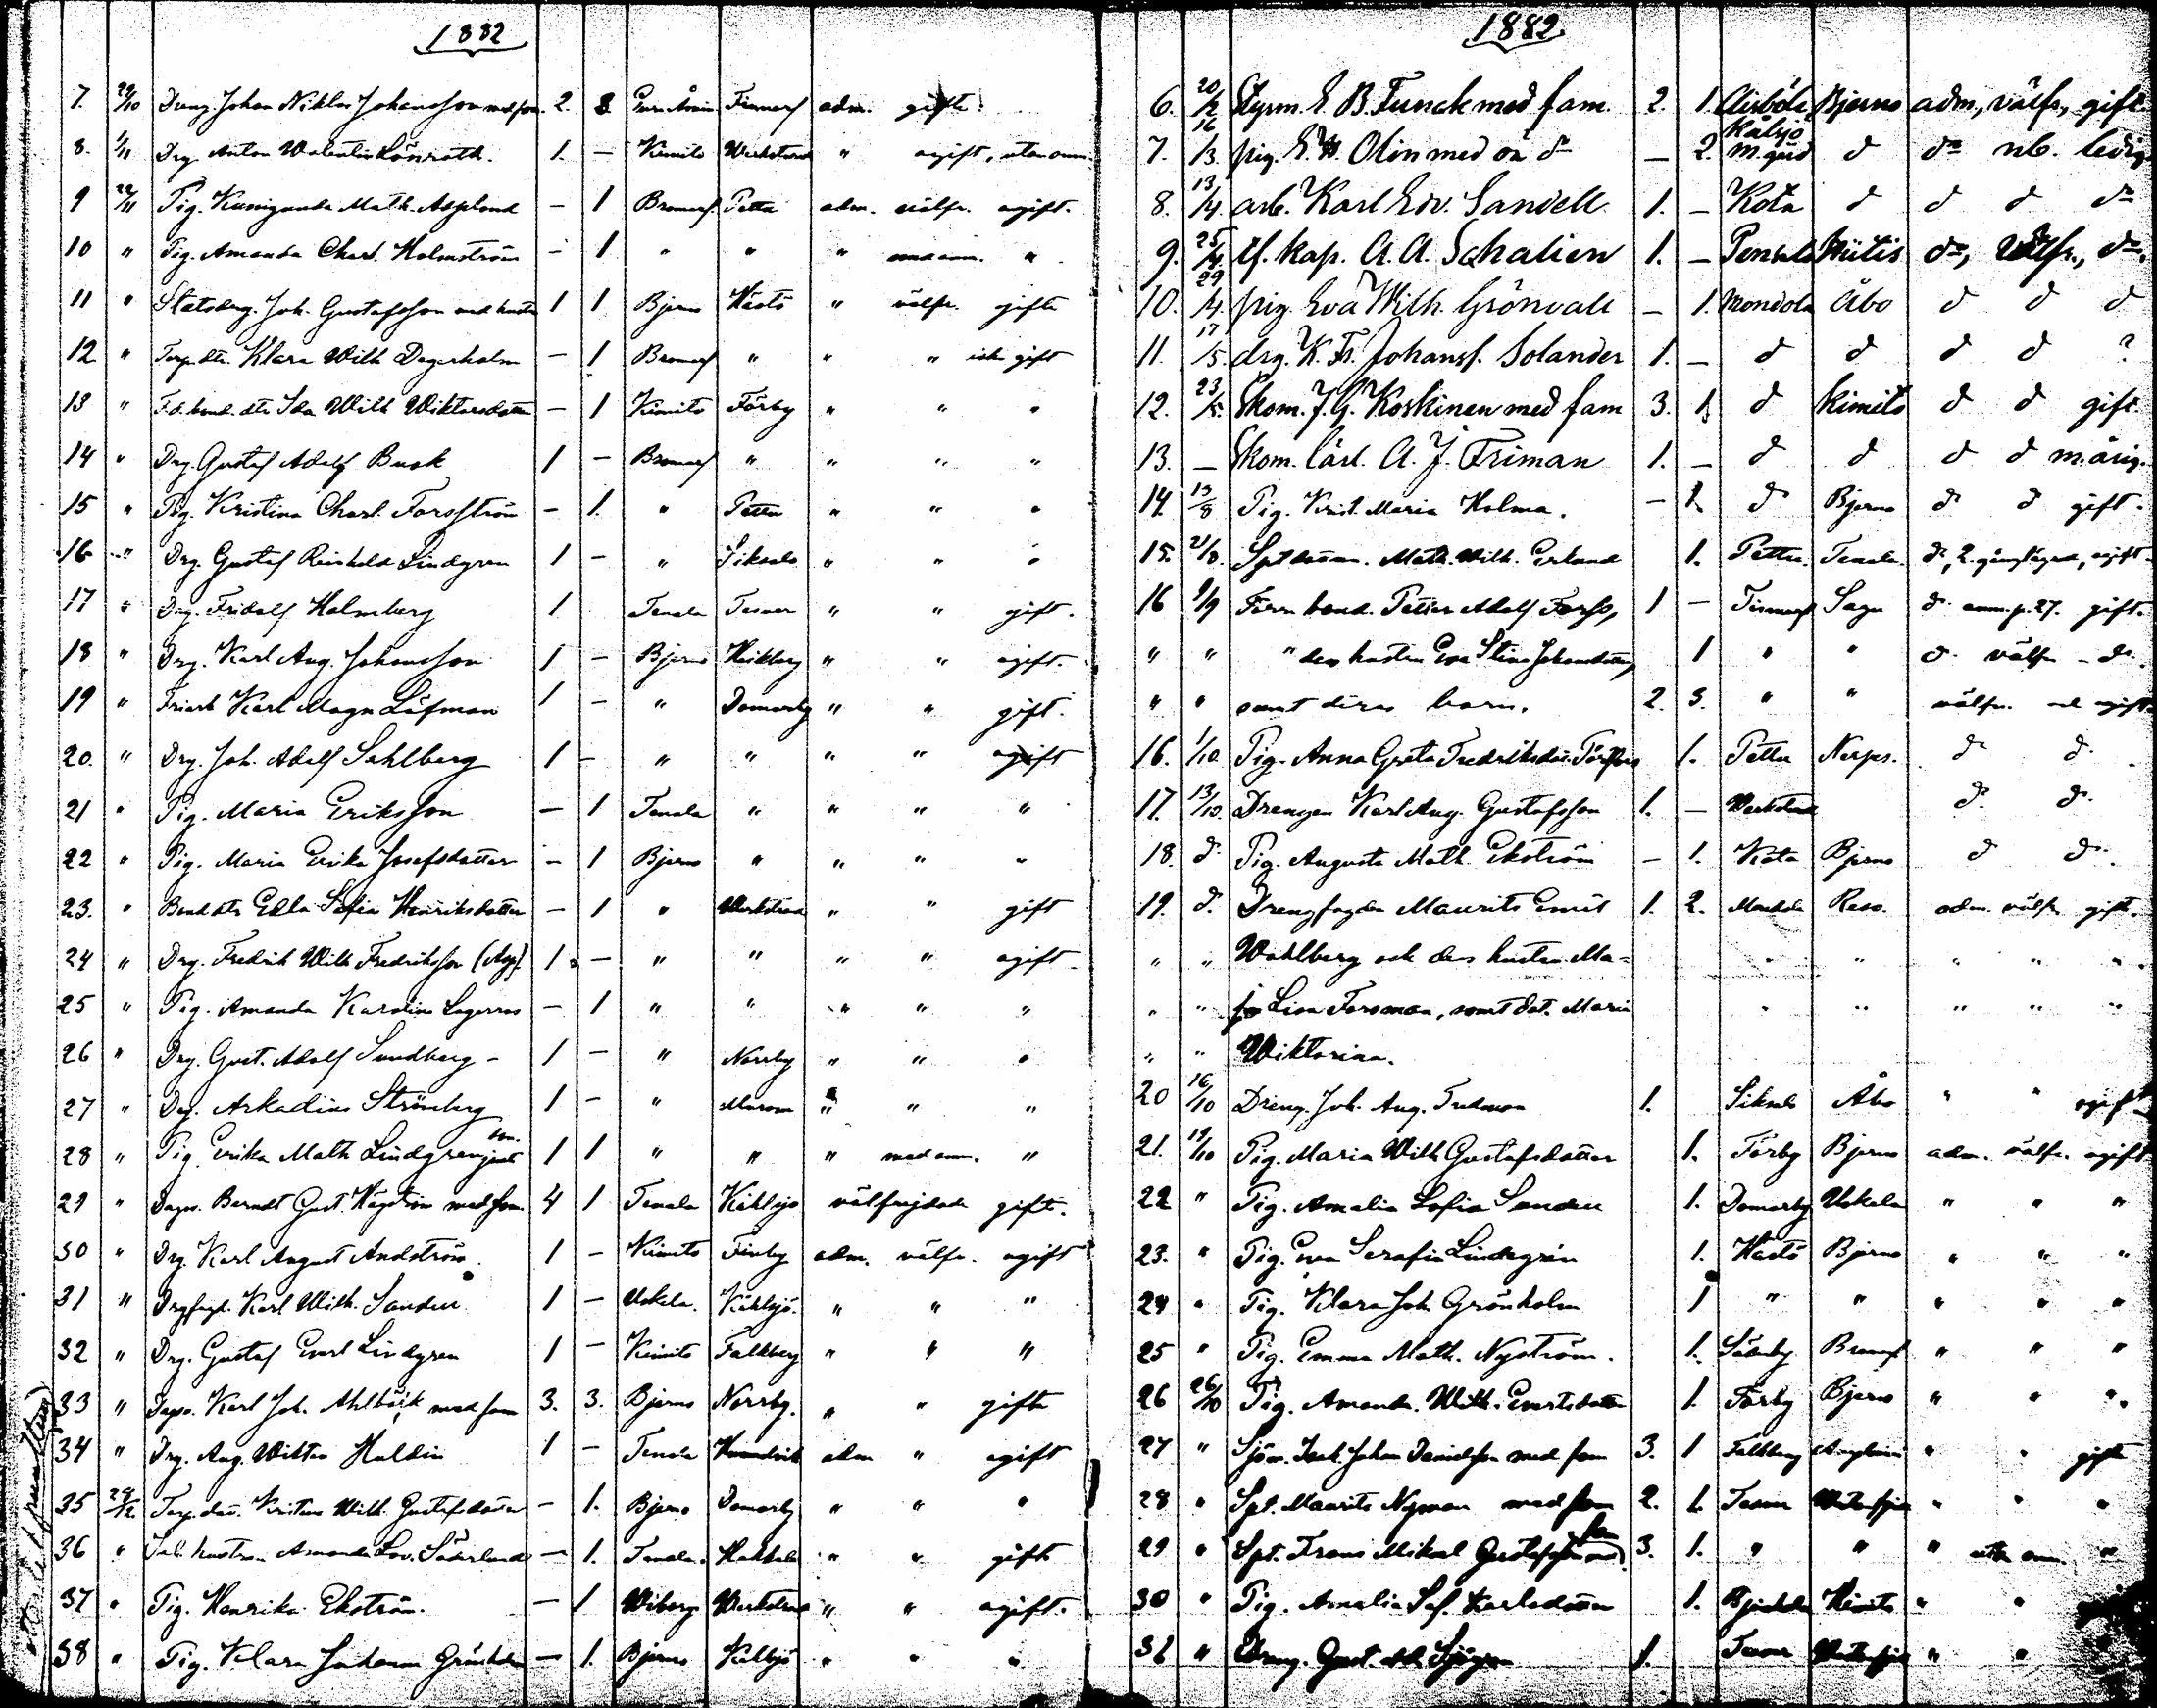 1882
7. 24/10 Dreng. Johan Niklas Johansson med fam. 2. 3. Finnarf adm. gifte.
8. 1/11 Drg. Anton Walentin Lönroth. 1. – Kimito Werkstrand " ogift, utan anm.
9 22/11 Pig. Kunigunda Math. Asplund – 1 Bromarf Pettu adm. välfr. ogift.
10 " Pig. Amanda Charl. Holmström – 1 " " " med anm. "
11 " Statsdrg. Joh. Gustafsson med hustru 1 1 Bjerno Hästö " välfr. gifte
12 " Torp. dtr. Klara Wilh Degerholm – 1 Bromarf " " " icke gift
13 " F.d. bond. dtr Ida Wilh Wiktorsdotter – 1 Kimito Förby " " "
14 " Drg. Gustaf Adolf Busk 1 – Bromarf " " " "
15 " Pig. Kristina Charl. Forsström – 1. " Pettu " " "
16 " Drg. Gustaf Reinhold Lindgren 1 – " Siksalo " " "
17 " Drg. Fridolf Holmberg 1 Tenala Tesver " " gift.
18 " Drg. Karl Aug. Johansson 1 – Bjerno " " ogift.
19 " Karl Magn Löfman 1 – " Domarby " " gift.
20. " Drg. Joh. Adolf Sahlberg 1 – " " " " ogift
21 " Pig. Maria Eriksson – 1 Tenala " " " "
22 " Pig. Maria Erika Josefsdotter – 1 Bjerno " " " "
23. " Bond dtr Edla Sofia Henriksdotter – 1 " Werkstrand " " gift
24 " Drg. Fredrik Wilh Fredriksson (Asp). 1 – " " " " ogift.
25 " Pig. Amanda Karolina Lagerroos – 1 " " " " "
26 " Drg. Gust. Adolf Sundberg – 1 – " Norrby " " "
27 " Drg. Arkadius Strömberg 1 – " " " "
28 " Pig. Erika Math Lindgren son. 1 1 " " " med anm. "
29 " Berndt Gust. Hägström med fam 4 1 Tenala Kählsjo välfrejdade gifte.
30 " Drg. Karl August Andström 1 – Kimito Finby adm. välfr. ogift
31 " Drgfogd. Karl Wilh. Sandell 1 – Uskela. Kählsjö. " " "
32 " Drg. Gustaf Evert Lindgren 1 – Kimito Falkberg " " "
33 " Karl Joh. Ahlbäck med fam 3. 3. Bjerno Norrby. " " gifte
34 " Drg. Aug. Wiktor Huldin 1 – Tenala adm " ogift
35 28/12. Torp. dtr. Kristina Wilh. Gustafsdotter – 1. Bjerno Domarby " " "
36 " hustrun Amanda Lov. Söderlund – 1. Tenala. " " gift
37 " Pig. Henrika Ekström. – 1 Wiborg Werkstrand " " ogift.
38 " Pig. Klara Johanna Grönholm – 1. Bjerno " " "
1882.
6. 20/2 Styrm. E. B. Funck med fam. 2. 1. Bjerno adm., välfr., gift.
7. 16/3. pig. E. W. Olin med oä d – 2. Kålsjö m. gård d do nb. ledig.
8. 13/4. arb. Karl Edv. Sandell 1. – Kota d d d do
9. 25/4. tf. kap. A. A. Schalien 1. – Hiitis do, välfr., do.
10. 29/4. pig. Eva Wilh. Grönvall – 1. Mondola Åbo d d d
11. 17/5. drg. K. Fr. Johanss. Solander 1. – d d d d ?
12. 23/5. Skom. J. G. Koskinen med fam 3. 1. d Kimito d d gift.
13. – Skom. lärl. A. J. Friman 1. – d d d d m. årig.
14 13/8 Pig. Krist. Maria Holma. – 1. d Bjerno d d gift.
15. 21/8. Math. Wilh. Erlund 1. Pettu Tenala. d, 2. gånglägrad, ogift.
16 9/9 Förra bond. Petter Adolf Forss, 1 – Finnarf Sagu d. anm. p. 27. gift.
" " " des hustru Eva Stina Johansdotter, 1 " " d. välfr – d.
" " samt deras barn. 2. 3. " " välfr. ogift.
16. 1/10. Pig. Anna Greta Fredriksdotr. 1. Pettu Nerpes. d d.
17. 13/10. Drengen Karl Aug. Gustafsson 1. – Werkstrand d. d.
18. d. Pig. Augusta Math. Ekström – 1. Kota Bjerno d d.
19. d. Drengfogden Maurits Emil 1. 2. Reso. adm. välfr. gift.
" " Wahlberg och des hustru Ma= " " " " "
" " ja Lisa Forsman, samt dot. Maria " " " " "
" " Wiktorina.
20 16/10 Dreng. Joh. Aug. Fredman 1. Siksalo Åbo " " ogift
21. 19/10 Pig. Maria Wilh Gustafsdotter 1. Förby Bjerno adm. välfr. ogift
22 " Pig. Amalia Sofia Sandell 1. Domarby Uskela " " "
23. " Pig. Eva Serafia Lindegrén 1. Hästö Bjerno " " "
24 " Pig. Klara Joh Grönholm 1 " " " " "
25 " Pig. Emma Math. Nyström. 1. Söderby Bromarf " " "
26 26/10 Pig. Amanda. Wilh. Evertsdotter 1. Förby Bjerno " " "
27 " Sjöm. Isak Johan Danielsson med fam 3. 1 Falkberg " " gifte
28 " Spt. Maurits Nyman med fam 2. 1. " " "
29 " Spt. Frans Mikael Gustafsson med fam 3. 1. " " " utan anm. "
30 " Pig. Amalia Sof. Karlsdotter 1. Kimito " "
31 " Dreng. Gust. Ad. Sjögren 1. " "